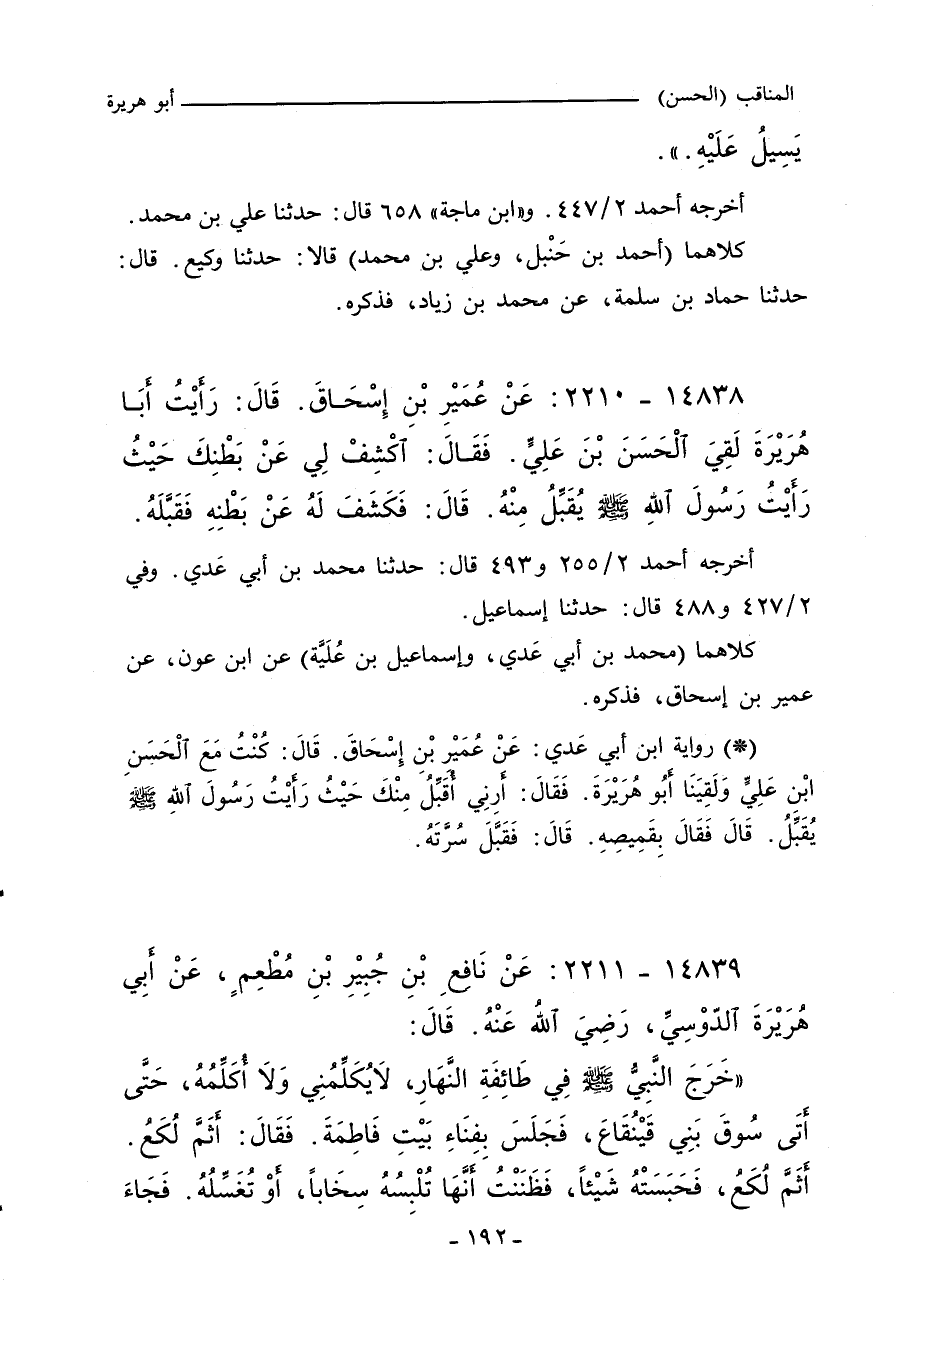 المناقب (الحسن) ــــــــــــــــــــــــــــــــــــــــ أبو هريرة
يَسِيلُ عَلَيْهِ.».
أخرجه أحمد ٤٤٧/٢. و«ابن ماجة» ٦٥٨ قال: حدثنا علي بن محمد.
كلاهما (أحمد بن حَنْبل، وعلي بن محمد) قالا: حدثنا وكيع. قال:
حدثنا حماد بن سلمة، عن محمد بن زياد، فذكره.
١٤٨٣٨ - ٢٢١٠: عَنْ عُمَيْرِ بْنِ إِسْحَـاقَ. قَالَ: رَأَيْتُ أَبَـا
هُرَيْرَةَ لَقِيَ ٱلْحَسَنَ بْنَ عَلِيٍّ. فَقَـالَ: ٱكْشِفْ لِي عَنْ بَطْنِكَ حَيْثُ
رَأَيْتُ رَسُولَ ٱللهِ ﷺ يُقَبِّلُ مِنْهُ. قَالَ: فَكَشَفَ لَهُ عَنْ بَطْنِهِ فَقَبَّلَهُ.
أخرجه أحمد ٢٥٥/٢ و٤٩٣ قال: حدثنا محمد بن أبي عَدي. وفي
٤٢٧/٢ و٤٨٨ قال: حدثنا إسماعيل.
كلاهما (محمد بن أبي عَدي، وإسماعيل بن عُلَيَّة) عن ابن عون، عن
عمير بن إسحاق، فذكره.
(*) رواية ابن أبي عَدي: عَنْ عُمَيْرِ بْنِ إِسْحَاقَ. قَالَ: كُنْتُ مَعَ ٱلْحَسَنِ
ابْنِ عَلِيٍّ وَلَقِيَنَا أَبُو هُرَيْرَةَ. فَقَالَ: أَرِنِي أُقَبِّلُ مِنْكَ حَيْثُ رَأَيْتُ رَسُولَ ٱللهِ ﷺ
يُقَبِّلُ. قَالَ فَقَالَ بِقَمِيصِهِ. قَالَ: فَقَبَّلَ سُرَّتَهُ.
١٤٨٣٩ - ٢٢١١: عَنْ نَافِعِ بْنِ جُبِيْرِ بْنِ مُطْعِمٍ، عَنْ أَبِي
هُرَيْرَةَ ٱلدَّوْسِيِّ، رَضِيَ ٱللهُ عَنْهُ. قَالَ:
«خَرَجَ النَّبِيُّ ﷺ فِي طَائِفَةِ النَّهَارِ، لَايُكَلِّمُنِي وَلَا أُكَلِّمُهُ، حَتَّى
أَتَى سُوقَ بَنِي قَيْنُقَاعَ، فَجَلَسَ بِفِنَاءِ بَيْتِ فَاطِمَةَ. فَقَالَ: أَثَمَّ لُكَعُ.
أَثَمَّ لُكَعُ، فَحَبَسَتْهُ شَيْئاً، فَظَنَنْتُ أَنَّهَا تُلْبِسُهُ سِخَاباً، أَوْ تُغَسِّلُهُ. فَجَاءَ
- ١٩٢ -